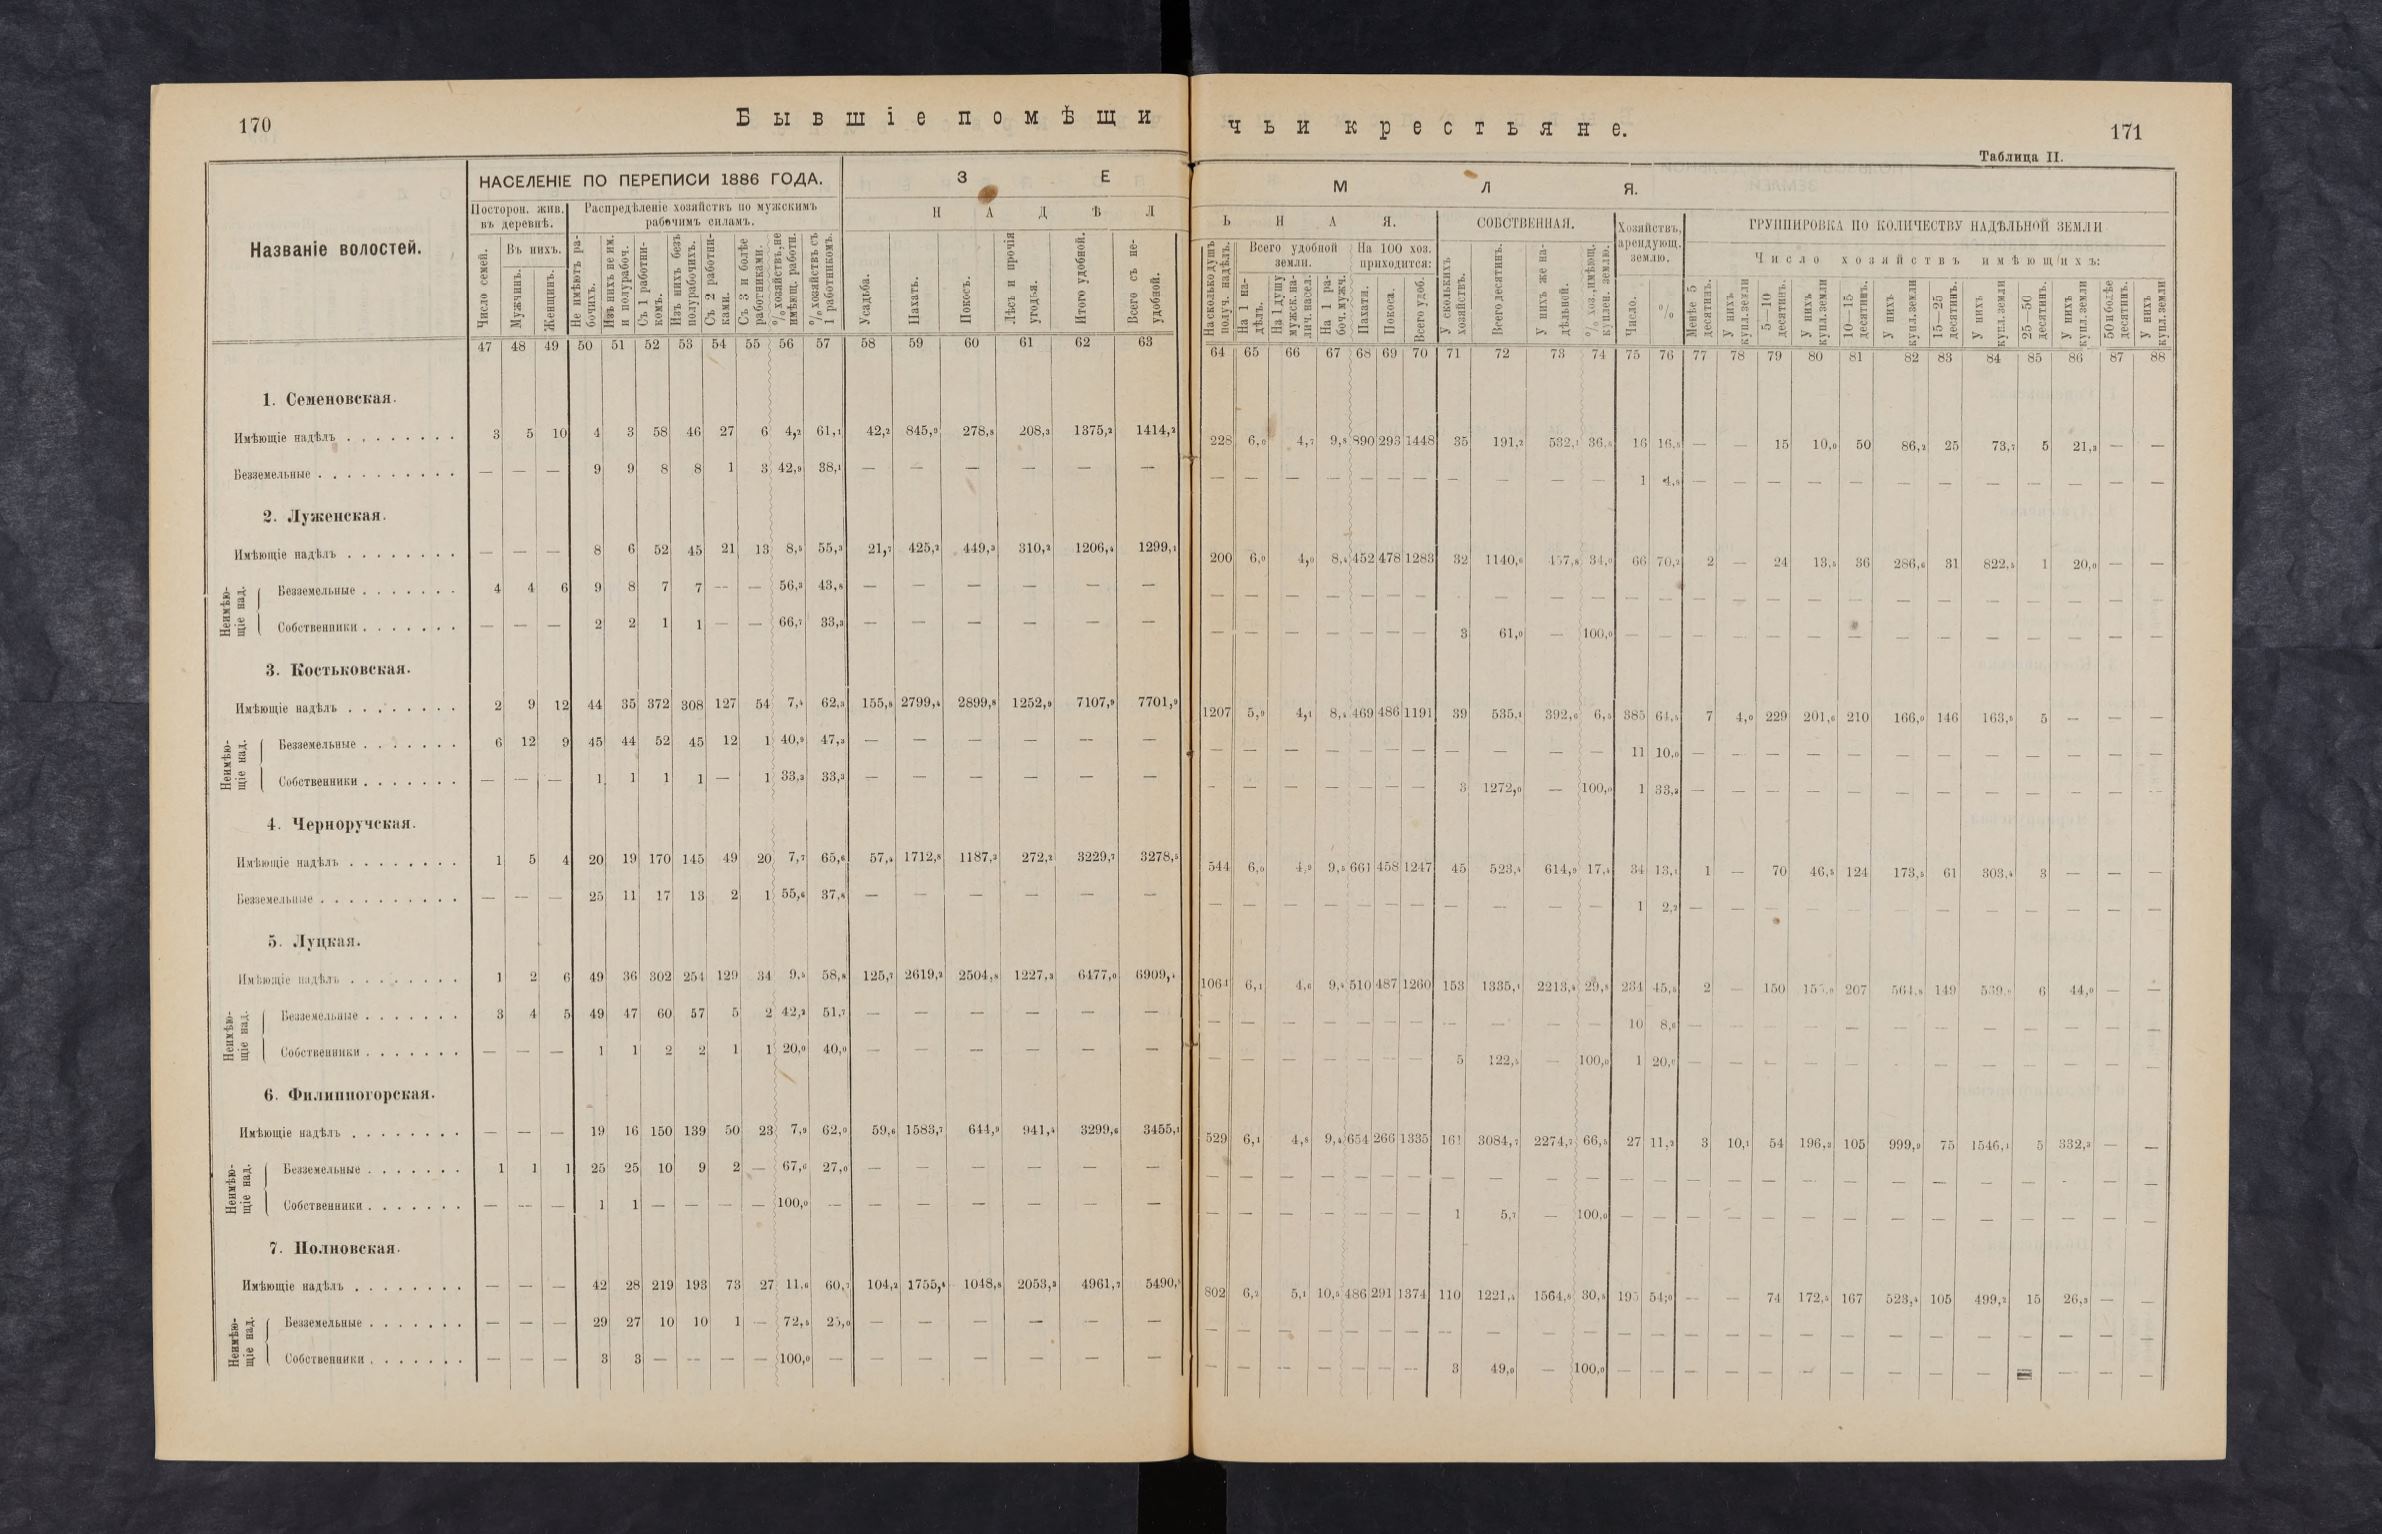 170
Бывшіе помѣщи
НАСЕЛЕНІЕ ПО ПЕРЕПИСИ 1886 ГОДА.
З Е
Названіе волостей.
Посторон. жив. въ деревнѣ.
Распредѣленіе хозяйствъ по мужскимъ рабочимъ силамъ.
Н А Д Ѣ Л
Число семей.
Въ нихъ.
Мужчинъ.
Женщинъ.
Не имѣютъ рабочихъ.
Изъ нихъ не им. и полурабоч.
Съ 1 работникомъ.
Изъ нихъ безъ полурабочихъ.
Съ 2 работниками.
Съ 3 и болѣе работниками.
% хозяйствъ, не имѣющ. работн.
% хозяйствъ съ 1 работникомъ.
Усадьба.
Пахать.
Покосъ.
Лѣсъ и прочія угодья.
Итого удобной.
Всего съ неудобной.
47 48 49 50 51 52 53 54 55 56 57 58 59 60 61 62 63
1. Семеновская.
Имѣющіе надѣлъ 3 5 10 4 3 58 46 27 6 4,2 61,1 42,2 845,9 278,8 208,3 1375,2 1414,2
Безземельные — — — 9 9 8 8 1 3 42,9 38,1 — — — — — —
2. Луженская.
Имѣющіе надѣлъ — — — 8 6 52 45 21 13 8,5 55,3 21,7 425,2 449,3 310,2 1206,4 1299,1
Неимѣющіе над.
Безземельные 4 4 6 9 8 7 7 — — 56,3 43,8 — — — — — —
Собственники — — — 2 2 1 1 — — 66,7 33,3 — — — — — —
3. Костьковская.
Имѣющіе надѣлъ 2 9 12 44 35 372 308 127 54 7,4 62,3 155,8 2799,4 2899,8 1252,9 7107,9 7701,9
Неимѣющіе над.
Безземельные 6 12 9 45 44 52 45 12 1 40,9 47,3 — — — — — —
Собственники — — — 1 1 1 1 — 1 33,3 33,3 — — — — — —
4. Черноручская.
Имѣющіе надѣлъ 1 5 4 20 19 170 145 49 20 7,7 65,6 57,4 1712,8 1187,3 272,2 3229,7 3278,5
Безземельные — — — 25 11 17 13 2 1 55,6 37,8 — — — — — —
5. Луцкая.
Имѣющіе надѣлъ 1 2 6 49 36 302 254 129 34 9,5 58,8 125,7 2619,2 2504,8 1227,3 6477,0 6909,4
Неимѣющіе над.
Безземельные 3 4 5 49 47 60 57 5 2 42,2 51,7 — — — — — —
Собственники — — — 1 1 2 2 1 1 20,0 40,0 — — — — — —
6. Филиппогорская.
Имѣющіе надѣлъ — — — 19 16 150 139 50 23 7,9 62,0 59,6 1583,7 644,9 941,4 3299,6 3455,1
Неимѣющіе над.
Безземельные 1 1 1 25 25 10 9 2 — 67,6 27,0 — — — — — —
Собственники — — — 1 1 — — — — 100,0 — — — — — — —
7. Полновская.
Имѣющіе надѣлъ — — — 42 28 219 193 73 27 11,6 60,7 104,2 1755,4 1048,8 2053,3 4961,7
Неимѣющіе над.
Безземельные — — — 29 27 10 10 1 — 72,5 25,0 — — — — — —
Собственники — — — 3 3 — — — — 100,0 — — — — — — —
чьи крестьяне.
171
Таблица II.
М Л Я.
Ь Н А Я.
СОБСТВЕННАЯ.
Хозяйствъ, арендующ. землю.
ГРУППИРОВКА ПО КОЛИЧЕСТВУ НАДѢЛЬНОЙ ЗЕМЛИ
На сколько душъ получ. надѣлъ.
Всего удобной земли.
На 100 хоз. приходится:
Число хозяйствъ имѣющихъ:
На 1 надѣлъ.
На 1 душу мужск. налич. насел.
На 1 рабоч. мужч.
Пахати.
Покоса.
Всего удоб.
У сколькихъ хозяйствъ.
Всего десятинъ.
У нихъ же надѣльной.
% хоз., имѣющ. куплен. землю.
Число.
%
Менѣе 5 десятинъ.
У нихъ купл. земли
5—10 десятинъ.
У нихъ купл. земли
10—15 десятинъ.
У нихъ купл. земли
15—25 десятинъ.
У нихъ купл. земли
25—50 десятинъ.
У нихъ купл. земли
50 и болѣе десятинъ.
У нихъ купл. земли
64 65 66 67 68 69 70 71 72 73 74 75 76 77 78 79 80 81 82 83 84 85 86 87 88
228 6,0 4,7 9,8 890 293 1448 35 191,2 532,1 36,8 16 16,8 — — 15 10,0 50 86,2 25 73,7 5 21,3 — —
— — — — — — — — — — — 1 4,8 — — — — — — — — — — — —
200 6,0 4,0 8,4 452 478 1283 32 1140,6 457,8 34,0 66 70,2 2 — 24 13,5 36 286,6 31 822,5 1 20,0 — —
— — — — — — — — — — — — — — — — — — — — — — — — —
— — — — — — — 3 61,0 — 100,0 — — — — — — — — — — — — — —
1207 5,9 4,1 8,4 469 486 1191 39 535,1 392,6 6,5 385 64,5 7 4,0 229 201,6 210 166,0 146 163,5 5 — — —
— — — — — — — — — — — 11 10,0 — — — — — — — — — — — —
— — — — — — — 3 1272,0 — 100,0 1 33,3 — — — — — — — — — — — —
544 6,0 4,9 9,5 661 458 1247 45 523,4 614,9 17,4 34 13,1 1 — 70 46,5 124 173,5 61 303,4 3 — — —
— — — — — — — — — — — 1 2,2 — — — — — — — — — — — —
1064 6,1 4,6 9,4 510 487 1260 153 1335,1 2213,4 29,8 234 45,5 2 — 150 207 564,8 149 539,0 6 44,0 — —
— — — — — — — — — — — 10 8,6 — — — — — — — — — — — —
— — — — — — — 5 122,5 — 100,0 1 20,0 — — — — — — — — — — — —
529 6,1 4,8 9,4 654 266 1335 161 3084,7 2274,7 66,5 27 11,2 3 10,1 54 196,3 105 999,9 75 1546,1 5 332,3 — —
— — — — — — — — — — — — — — — — — — — — — — — — —
— — — — — — — 1 5,7 — 100,0 — — — — — — — — — — — — — —
802 6,2 5,1 10,5 486 291 1374 110 1221,4 1564,8 30,5 195 54,0 — — 74 172,5 167 523,4 105 499,2 15 26,3 — —
— — — — — — — — — — — — — — — — — — — — — — — — —
— — — — — — — 3 49,0 — 100,0 — — — — — — — — — — — — —